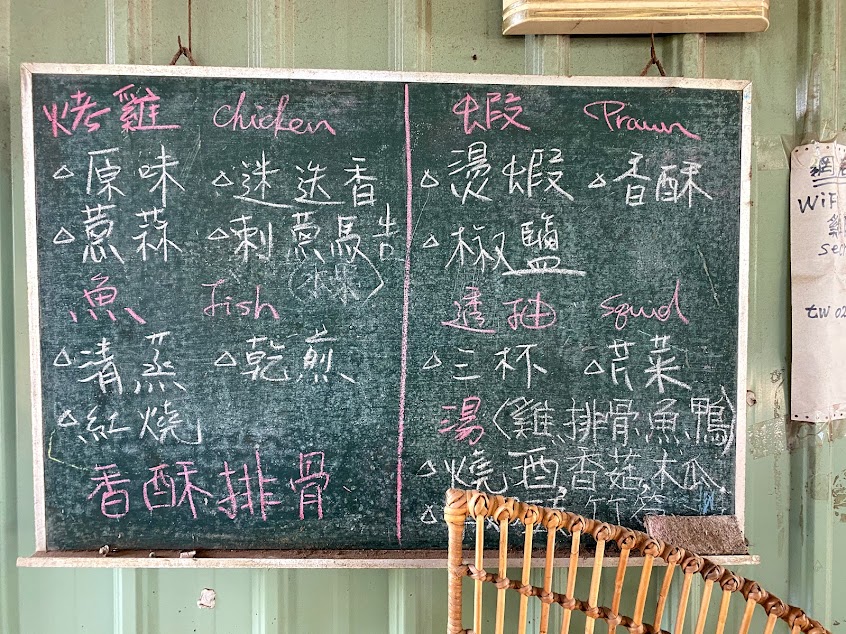 烤雞 chicken
△原味 △迷迭香
△蔥蒜 △刺蔥馬告
魚 Fish
△清蒸 △乾煎
△紅燒
香酥排骨
蝦 Prawn
△燙蝦 △香酥
△椒鹽
透抽 Squid
△三杯 △芹菜
湯(雞.排骨.魚.鴨)
△燒酒,香菇,木瓜,
WiF